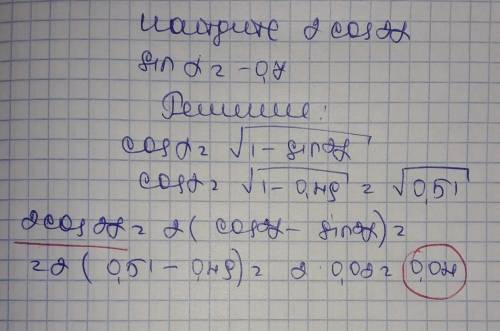 Найдите 2 cos2α
sin α = -0,7
Решение:
cosα = √1 - sin²α
cosα = √1 - 0,49 = √0,51
2cos2α = 2( cos²α - sin²α) =
= 2 ( 0,51 - 0,49) = 2 · 0,02 = 0,04